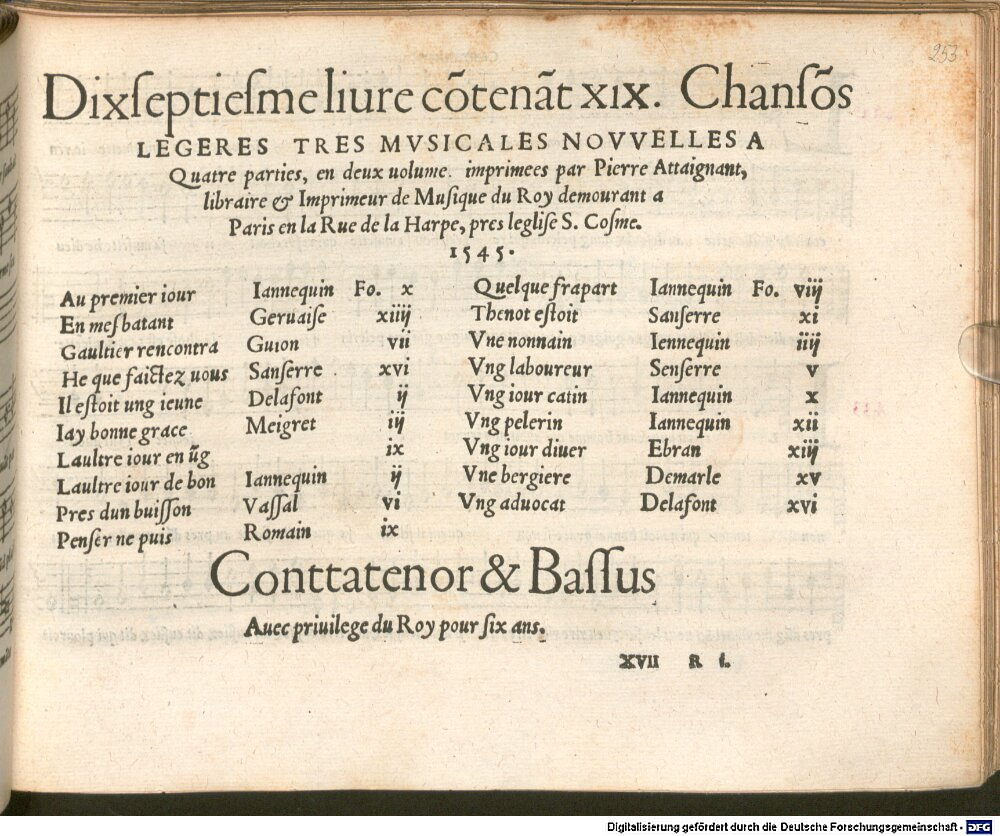 253
Dixſeptieſme liure cõtenãt XIX. Chanſõs
LEGERES TRES MVSICALES NOVVELLES A
Quatre parties, en deux uolume. imprimees par Pierre Attaignant,
libraire & Imprimeur de Muſique du Roy demourant a
Paris en la Rue de la Harpe, pres legliſe S. Coſme.
1545.
Au premier iour Iannequin Fo. x
En meſbatant Geruaiſe xiiij
Gaultier rencontra Guion vii
He que faictez uous Sanſerre xvi
Il eſtoit ung ieune Delafont ij
Iay bonne grace Meigret iij
Laultre iour en ũg ix
Laultre iour de bon Iannequin ij
Pres dun buiſſon Vaſſal vi
Penſer ne puis Romain ix
Quelque frapart Iannequin Fo. viij
Thenot eſtoit Sanſerre xi
Vne nonnain Iennequin iiij
Vng laboureur Senſerre v
Vng iour catin Iannequin x
Vng pelerin Iannequin xii
Vng iour diuer Ebran xiij
Vne bergiere Demarle xv
Vng aduocat Delafont xvi
Conttatenor & Baſſus
Auec priuilege du Roy pour ſix ans.
XVII R i.
Digitalisierung gefördert durch die Deutsche Forschungsgemeinschaft - DFG